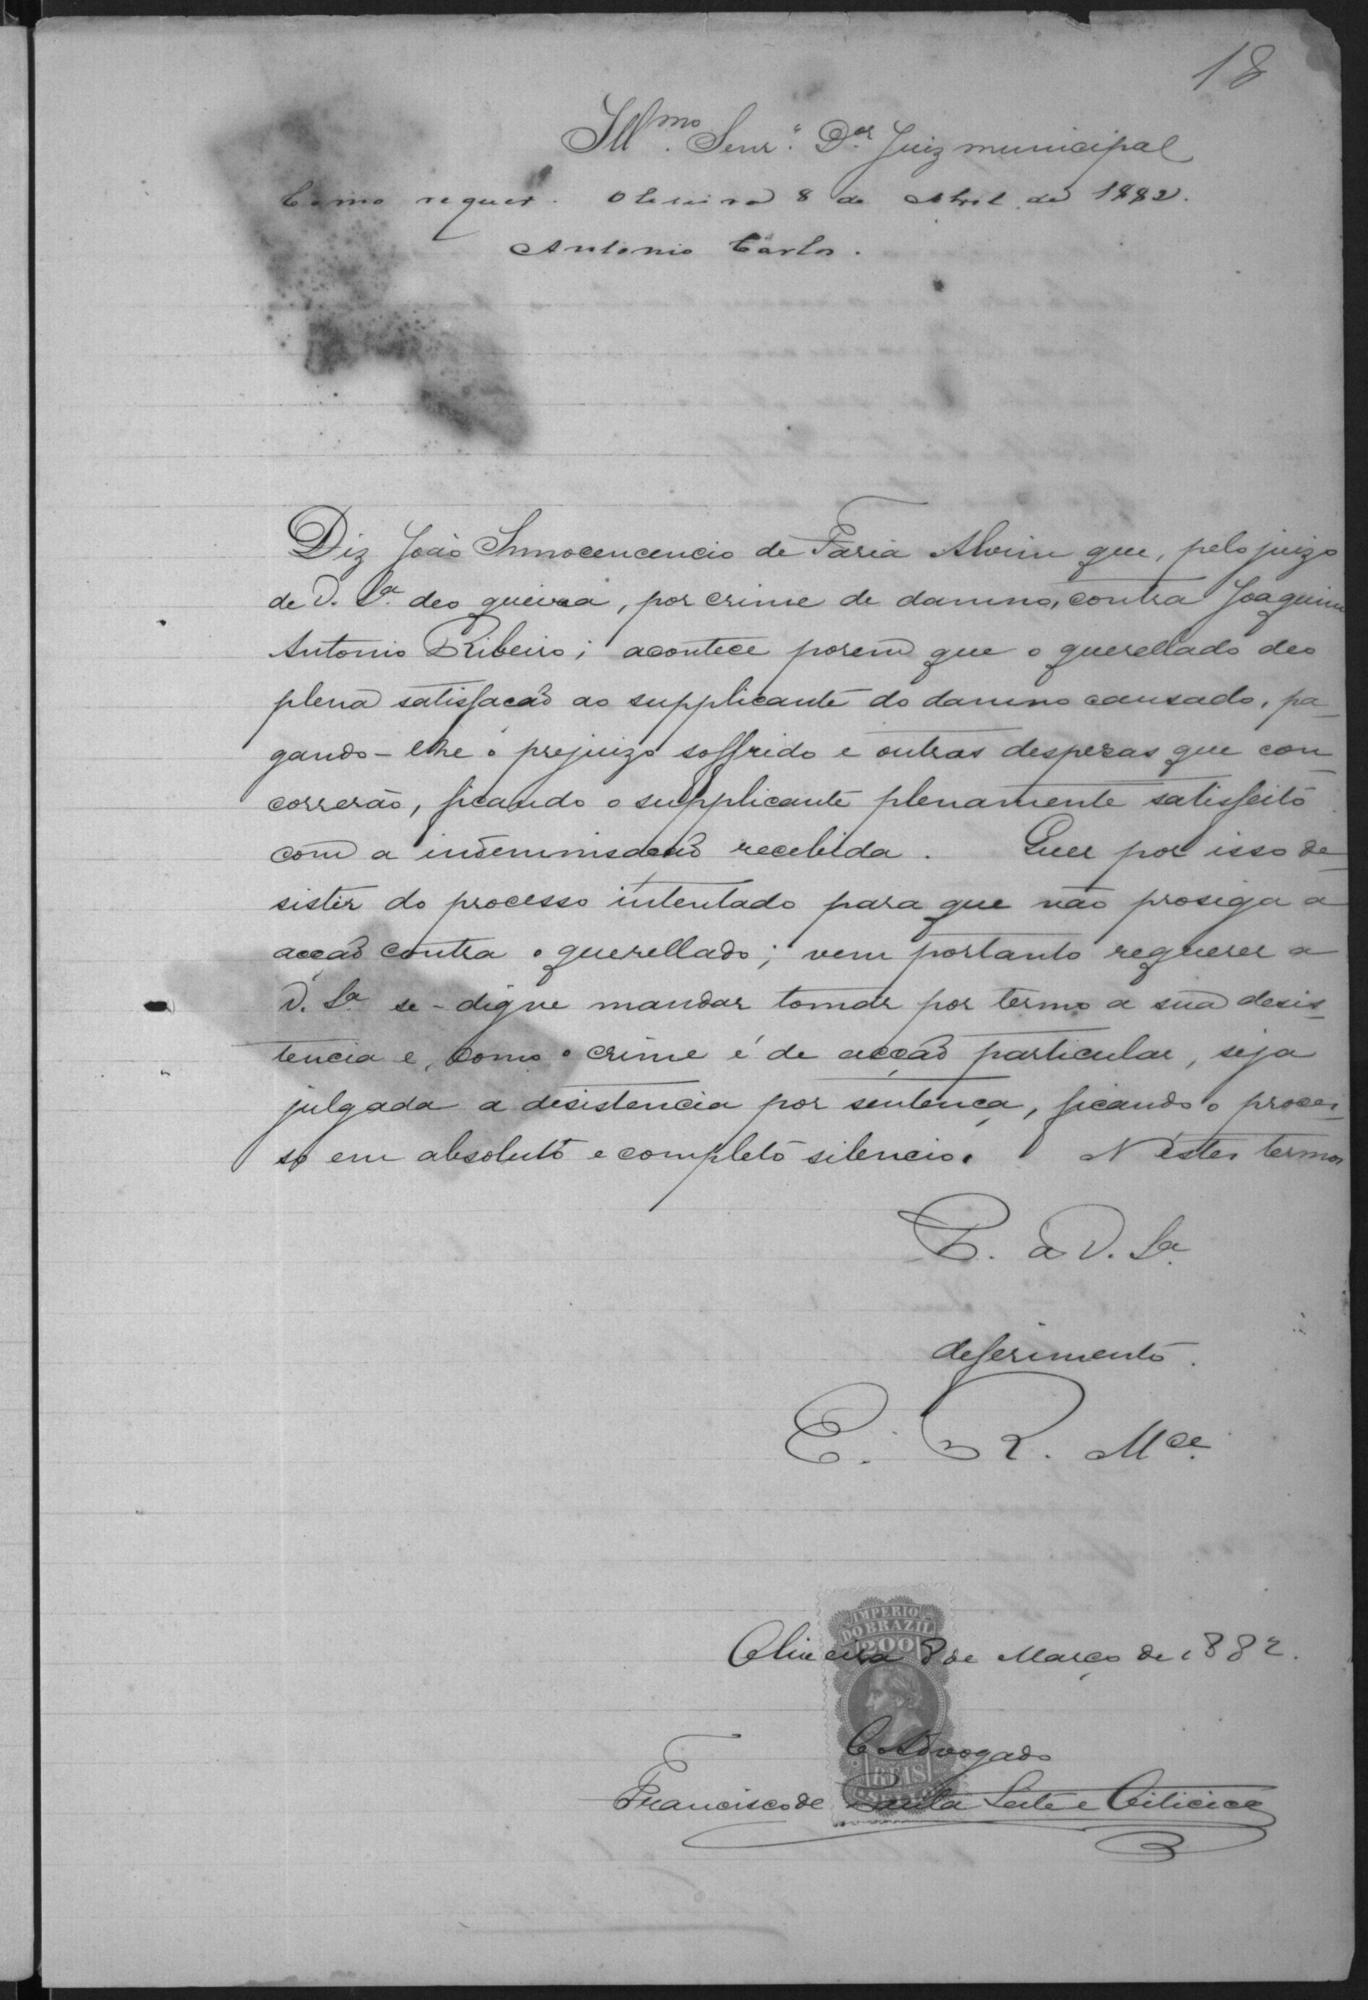 18
Illmo. Senr. Dor. Juiz municipal
Como requer. Oliveira 8 de Abril de 1882.
Antonio Carlos.
Diz João Innocencencio de Faria Alvim que, pelo juizo
de V. Sa. deo queixa, por crime de damno, contra Joaquim
Antonio Ribeiro; acontece porem que o querellado deo
plena satisfacão ao supplicante do damno causado, pa-
gando-lhe o prejuizo soffrido e outras despezas que con-
correrão, ficando o supplicante plenamente satisfeito
com a indemnisação recebida. Quer por isso de-
sistir do processo intentado para que não prosiga a
acção contra o querellado; vem portanto requerer a
V. Sa. se-digne mandar tomar por termo a sua desis-
tencia e, como o crime é de acção particular, seja
julgada a desistencia por sentença, ficando o proces-
so em absoluto e completo silencio. Nestes termos
P. a V. Sa.
deferimento.
E. R. Mce.
IMPERIO
DO BRAZIL
200
REIS
Oliveira 8 de Março de 1882.
O Advogado
Francisco de Paula Leite e Oiticica